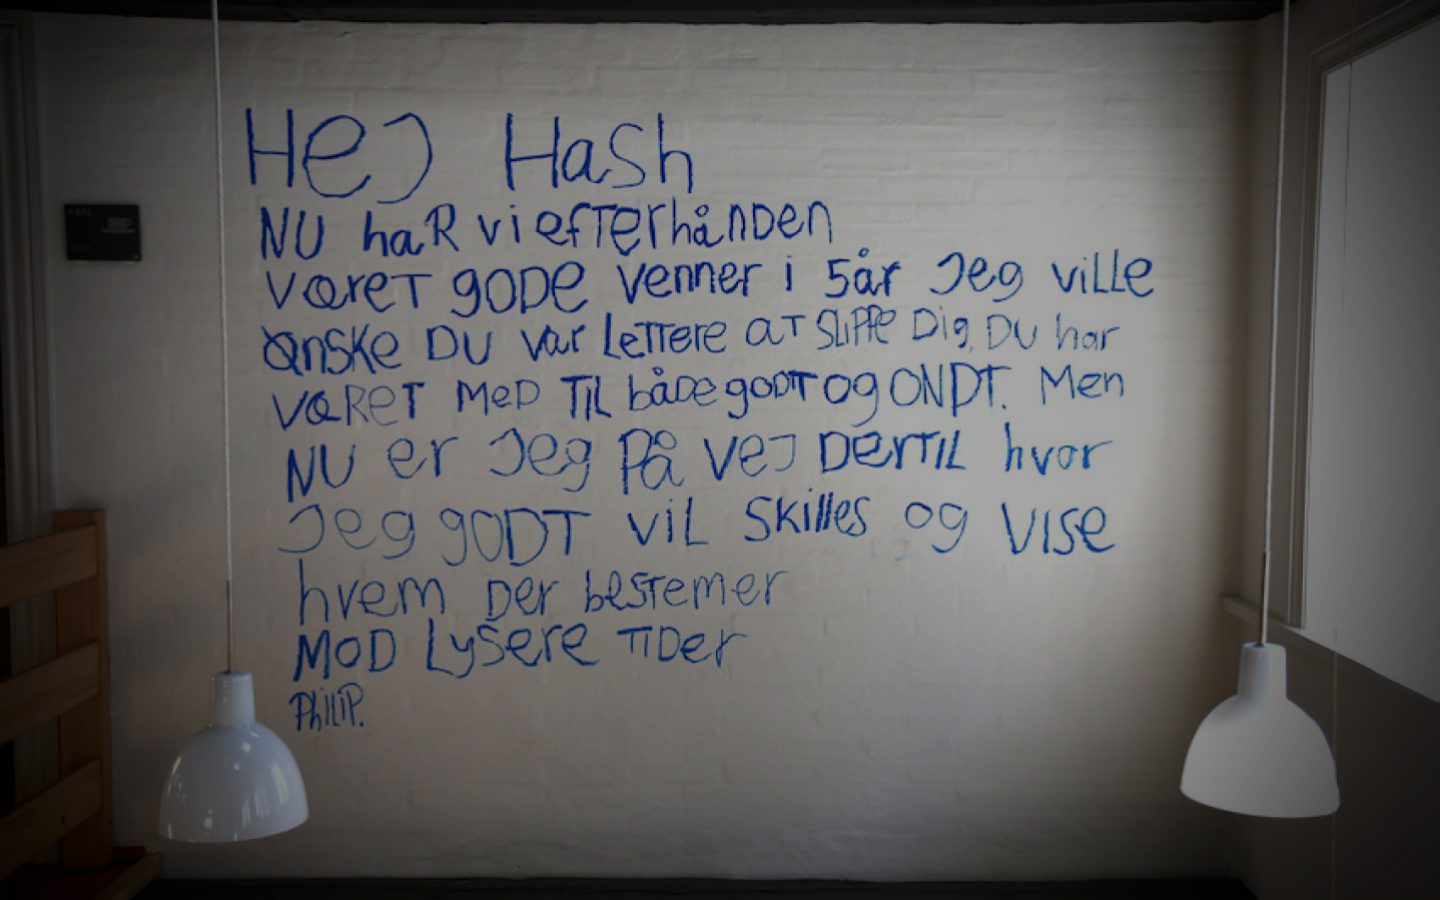 Hej Hash
NU haR vi efTerhånDen
væreT goDe venner i 5 år Jeg ville
ønske DU var leTTere aT sliPPe Dig. DU har
væReT MeD TiL båDe goDT og ONDT. Men
NU er Jeg På vej DerTiL hvor
Jeg goDT viL skilles og vise
hvem Der besTemer
MoD Lysere TiDer
PhiliP.